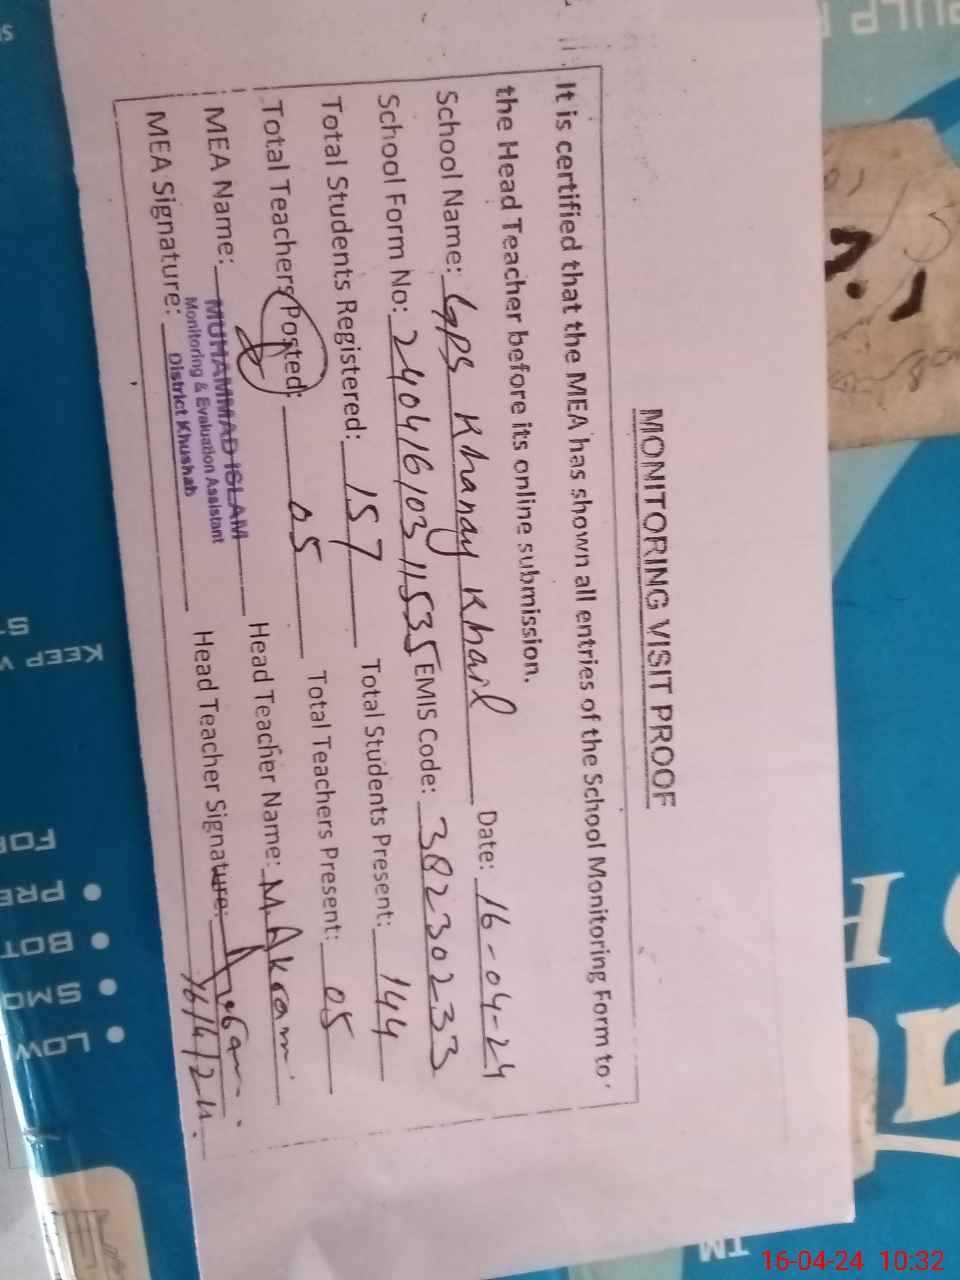 MONITORING VISIT PROOF
It is certified that the MEA has shown all entries of the School Monitoring Form to
the Head Teacher before its online submission.
School Name: GPS Khanay Khail Date: 16-04-24
School Form No: 2404161031 1535 EMIS Code: 38230233
Total Students Registered: 157 Total Students Present: 144
Total Teachers Posted: 05 Total Teachers Present: 05
MEA Name: MUHAMMAD ISLAM Head Teacher Name: M. Akram
Monitoring & Evaluation Assistant
District Khushab
MEA Signature: Head Teacher Signature:
16/4/24
KEEP
FOR
PRE
BOT
SMO
LOW
TM
16-04-24 10:32